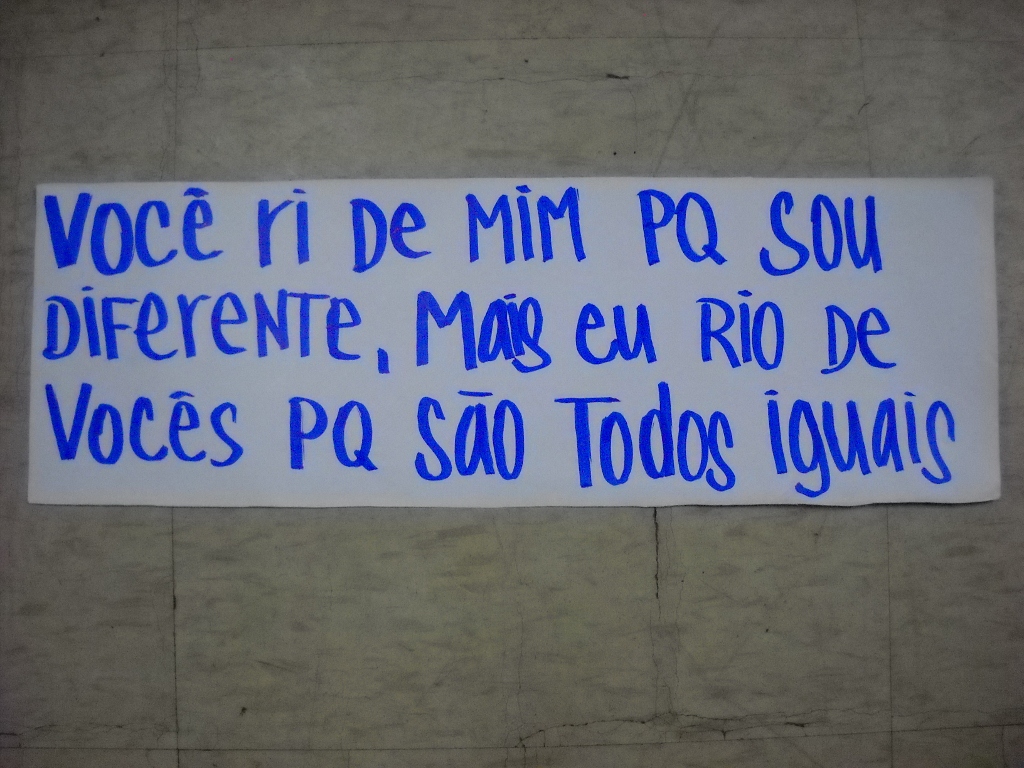 Você ri De MiM PQ SOU
DiFerente, Mais eu RiO De
Vocês PQ São Todos iguais